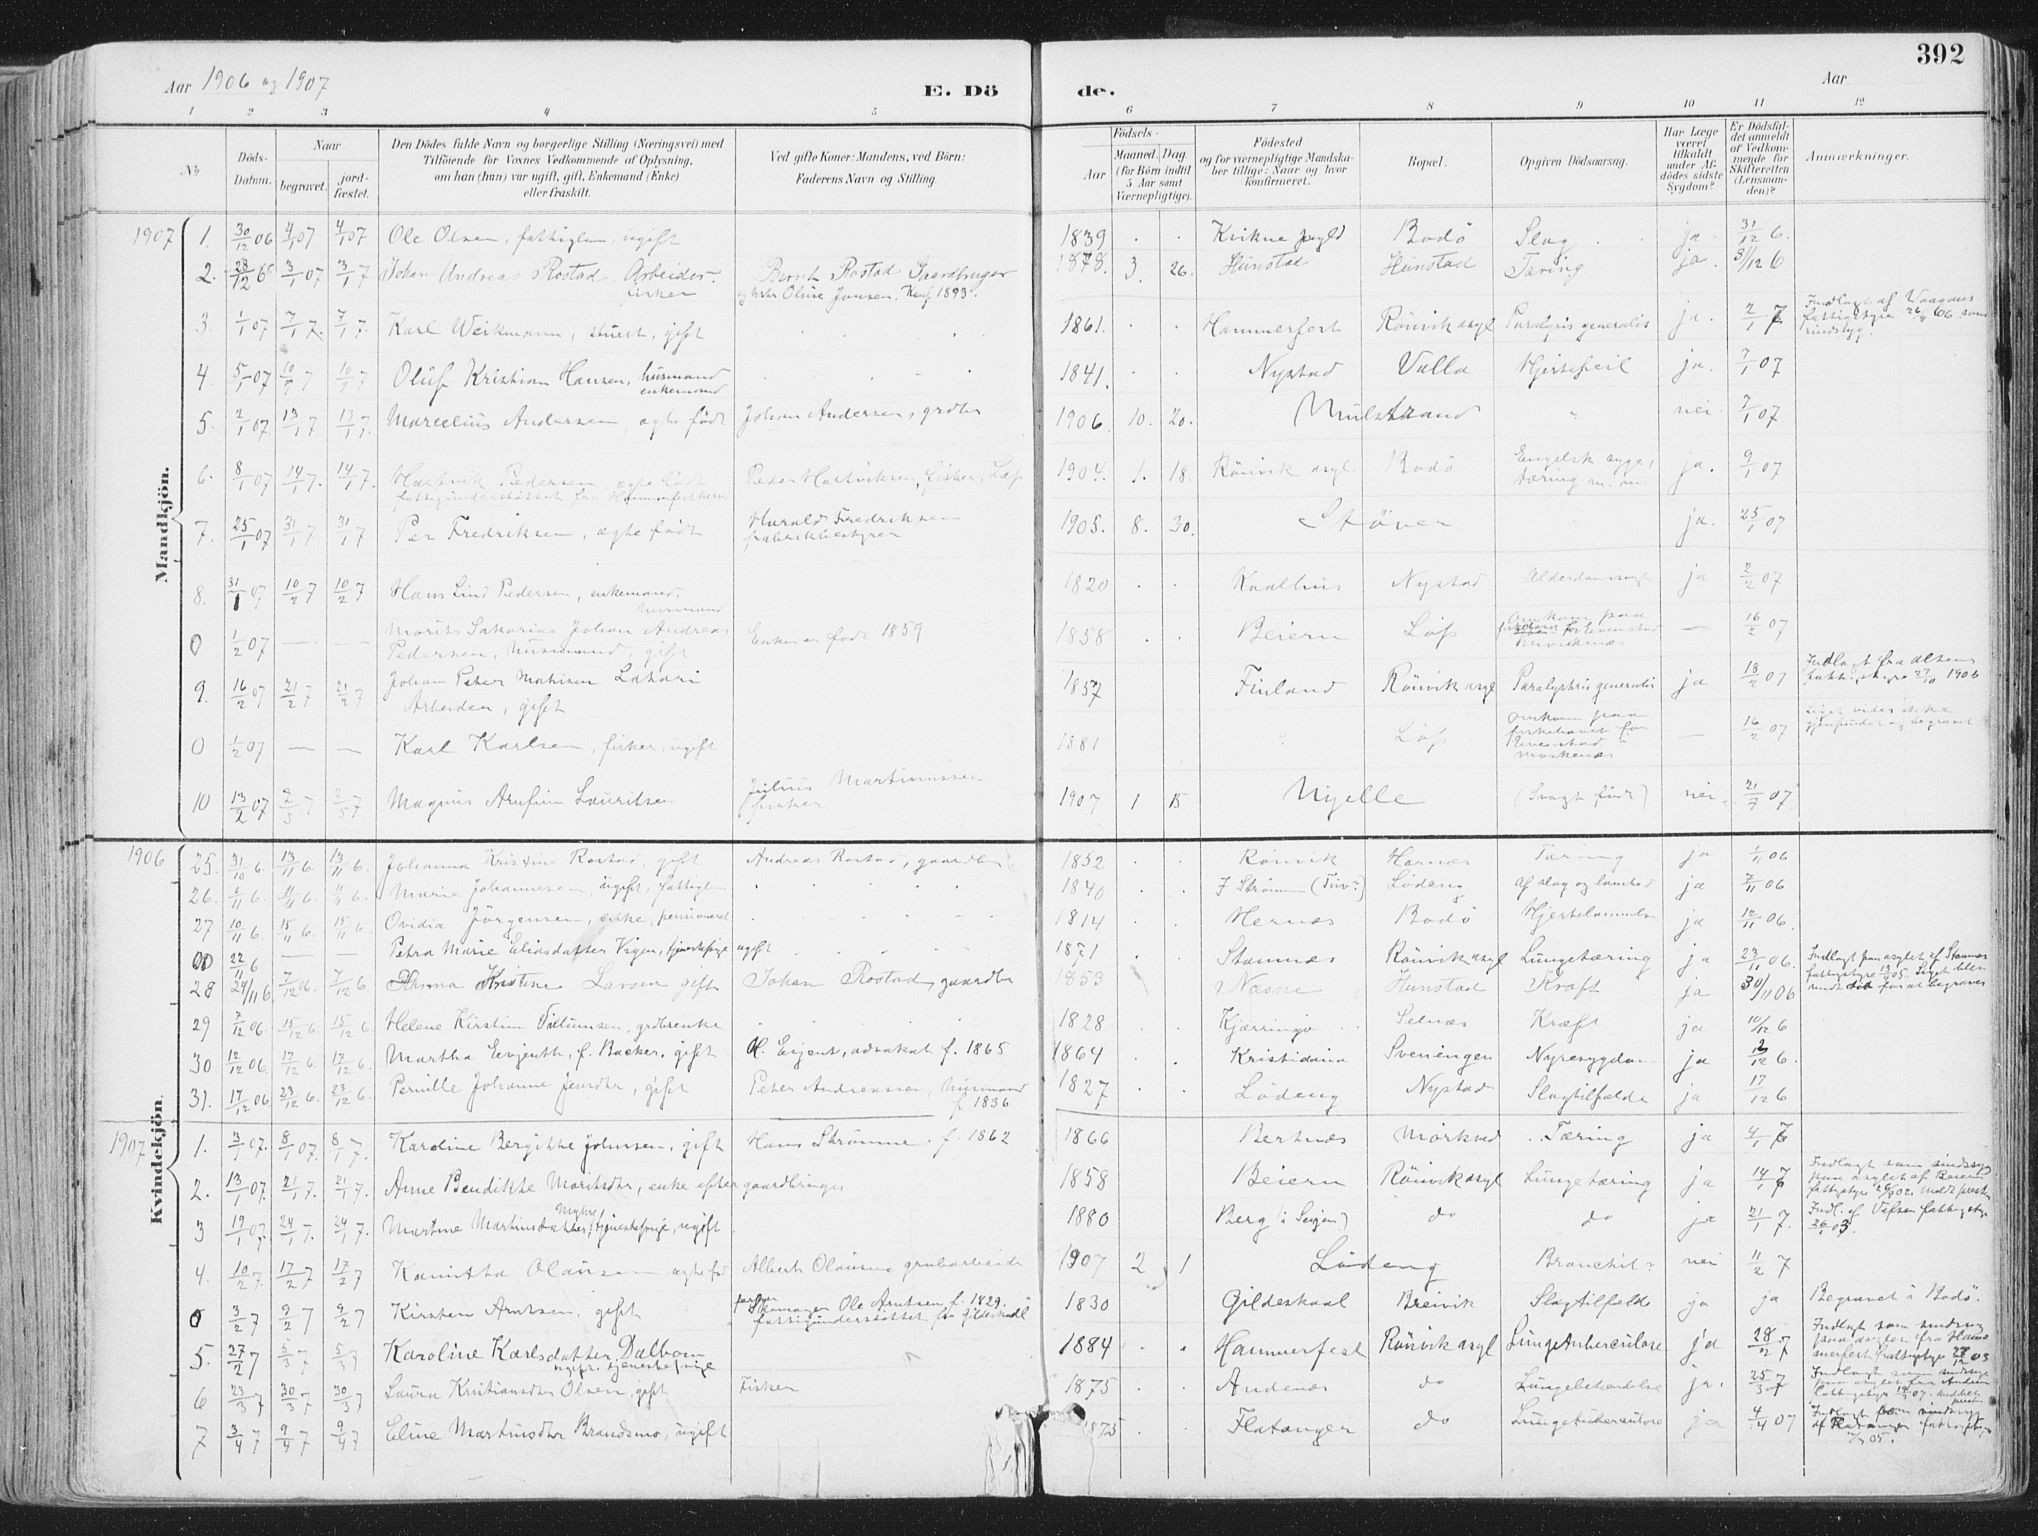 392
Aar 1906 og 1907
E. Dö de.
Aar
1 2 3 4 5 6 7 8 9 10 11 12
No
Döds-Datum.
Naar
begravet.
jord-fæstet.
Den Dödes fulde Navn og borgerlige Stilling (Næringsvei) med
Tilföiende for Voxnes Vedkommende af Oplysning,
om han (hun) var ugift, gift, Enkemand (Enke)
eller fraskilt.
Ved gifte Koner: Mandens, ved Börn:
Faderens Navn og Stilling.
Födsels-
Aar
Maaned. Dag.
(for Börn indtil
5 Aar samt
Værnepligtige).
Födested
og for værnepligtige Mandska-
ber tillige: Naar og hvor
konfirmeret.
Bopæl.
Opgiven Dödsaarsag.
Har Læge
været
tilkaldt
under Af-
dödes sidste
Sygdom?
Er Dödsfal-
det anmeldt
af Vedkom-
mende for
Skifteretten
(Lensman-
den)?
Anmærkninger.
Mandkjön.
1907 1. 30/12 06 4/1 07 4/1 07 Ole Olsen, fattiglem, ugift 1839 Kvikne Bodö Slag ja 31/12 6.
2. 28/12 6 3/1 07 3/1 7 Johan Andreas Rostad Arbeider. Bernt Rostad Gaardbruger 1878. 3. 26. Hunstad Hunstad Tæring ja. 31/12 6
fisker Oline Jonsen. Konf 1893.
3. 1/1 07 7/1 7. 7/1 7. Karl Weikmann, stuert, gift 1861. Hammerfest Rönvik asyl Paralysis generalis ja. 2/1 7 Indlagt af Vaagnes
fattigstyre 26/4 06 som
sindssyg.
4. 5/1 07 10/1 7 10/1 7 Oluf Kristian Hansen, husmand 1841. Nystad Valla Hjertefeil ja. 7/1 07
enkemand
5. 2/1 07 13/1 7 13/1 7. Marcelius Andersen, ægte födt Johan Andersen, grdbr 1906 10. 20. Mulstrand " nei 7/1 07
6. 8/1 07 14/1 7. 14/1 7. Hartvik Pedersen, ægte födt Peder Hartviksen, fisker, Löp 1904. 1. 18. Rönvik asyl Bodö Engelsk syge, ja. 9/1 07
tæring m. m
7. 25/1 07 31/1 7 31/1 7 Per Fredriksen, ægte födt Harald Fredriksen 1905. 8. 30. Støver ja. 25/1 07
fabrikbestyrer
8. 31/1 07 10/2 7 10/2 7 Hans Lind Pedersen, enkemand, 1820 Kaalhus Nystad Alderdomssvaghe ja 2/2 07
husmand
0 1/2 07 — — Morits Sakarias Johan Andreas Enken er födt 1859 1858 Beiern Löp Omkom paa — 16/2 07
Pedersen, husmand, gift
9. 16/2 07 21/2 7 21/2 7 Johan Peter Mathisen Lakari 1857 Finland Rönvik asyl Paralysis generalis ja 18/2 07 Indlagt fra Alsens
Arbeider, gift 1906
0 1/2 07 — — Karl Karlsen, fisker, ugift 1881 " Löp omkom paa — 16/2 07 Liget vides ikke
fiskehavet for gjenfundet og begravet
Revenstad
Moskenæs
10 13/2 07 2/5 7 2/5 7 Magnus Arnfinn Lauritsen Julius Martinussen 1907 1 15 Njelle (Svagt födt) nei 21/7 07
fisker
1906 25. 31/10 6. 13/11 6. 13/11 6. Johanna Kristine Rostad, gift Andreas Rostad, gaardbr 1852 Rönvik Hornæs Tæring ja 1/11 06
26. 6/11 6. 11/11 6 11/11 6. Marie Johannesen, ugift, fattiglem 1840 Lödeng af slag og lamhed ja 7/11 06
27 10/11 6. 15/11 6. 15/11 6. Ovidia Jörgensen, enke, pensioneret 1814 Hernæs Bodö Hjertelammelse ja 12/11 06.
0 22/11 6 — — Petra Marie Eliasdatter Vigen, tjenestepige ugift 1871 Stamnæs Rönvik asyl Lungetæring ja 23/11 06. Indlagt paa asylet af Stamnes
28 24/11 6. 7/12 06. 7/12 6 Anna Kristine Larsen gift Johan Rostad, gaardbr 1853 Næsne Hunstad Kræft ja 30/11 06
29 7/12 06 15/12 6 15/12 6. Helene Kirstine grdbrenke 1828 Kjærringö Selnæs Kræft ja 10/12 6
30 12/12 06. 17/12 6. 17/12 6. Martha Evjenth, f. Backer. gift H. Evjent, advokat f. 1865 1864 Kristiania Sveningen Nyresygdom ja 12/12 6.
31. 17/12 06 23/12 6. 23/12 6. Pernille Johanne Jensdtr, gift Peter Andreassen, husmand 1827 Lödeng Nystad Slagtilfælde ja 17/12 6
f. 1836
Kvindekjön.
1907 1. 3/1 07. 8/1 07. 8/1 7. Karoline Bergitte Johnsen, gift Hans Strömme f. 1862 1866 Bertnæs Mörkved Tæring ja 4/1 7
2. 13/1 07. 21/1 7. 21/1 7. Anne Bendikte Moritsdtr, enke efter gaardbruger 1858 Beiern Rönvik asyl Lungetæring ja 14/1 7 Indlagt som sindssyg
paa asylet af Beiern
3 19/1 07. 24/1 7. 24/1 7. Martine Martinsdatter, tjenestepige, ugift 1880 Berg (i Senjen?) do do ja 21/1 7. Indl. af Vefsen fattigstyr
26/6 03.
4. 10/2 7. 17/2 7 17/2 7 Kamitha Olausen ægte fød Albert Olausen grubearbeide 1907 2 1 Lödeng Bronchit? nei 11/2 7
0 3/2 7 9/2 7 9/2 7 Kirsten Arntsen, gift Skomager Ole Arntsen f. 1829. 1830 Gildeskaal Breivik Slagtilfælde ja ja Begravet i Bodö.
fattigunderstöttet fra Gildeskaal
5. 27/2 7 5/3 7 5/3 7 Karoline Karlsdatter Dalbom 1884 Hammerfest Rönvik asyl Lungetuberculose ja 28/2 7 Indlagt som sindssyg
ugift, tjenestepige paa asylet fra Ham
merfest fattigstyre 27/12 03
6 23/3 7 30/3 7 30/3 7 Laura Kristiansdtr Olsen, gift Fisker 1875 Andenæs do Lungebetændelse ja. 25/3 7 Indlagt som sindssyg
7 3/4 7 9/4 7 9/4 7 Eline Martinsdtr Brandsmo, ugift 1875 Flatanger do Lungetuberculose ja 4/4 07 Indlagt som sindssyg